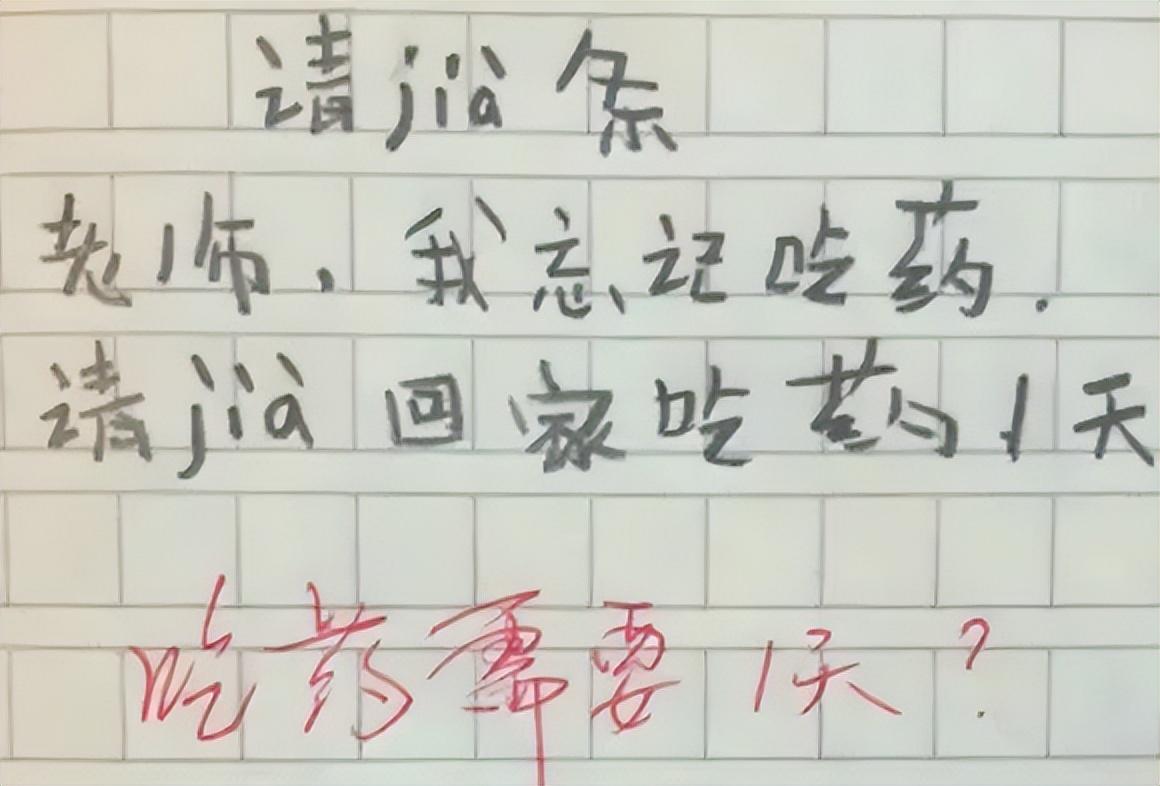 请jià条
老师，我忘记吃药.
请jià回家吃药1天
吃药需要1天？